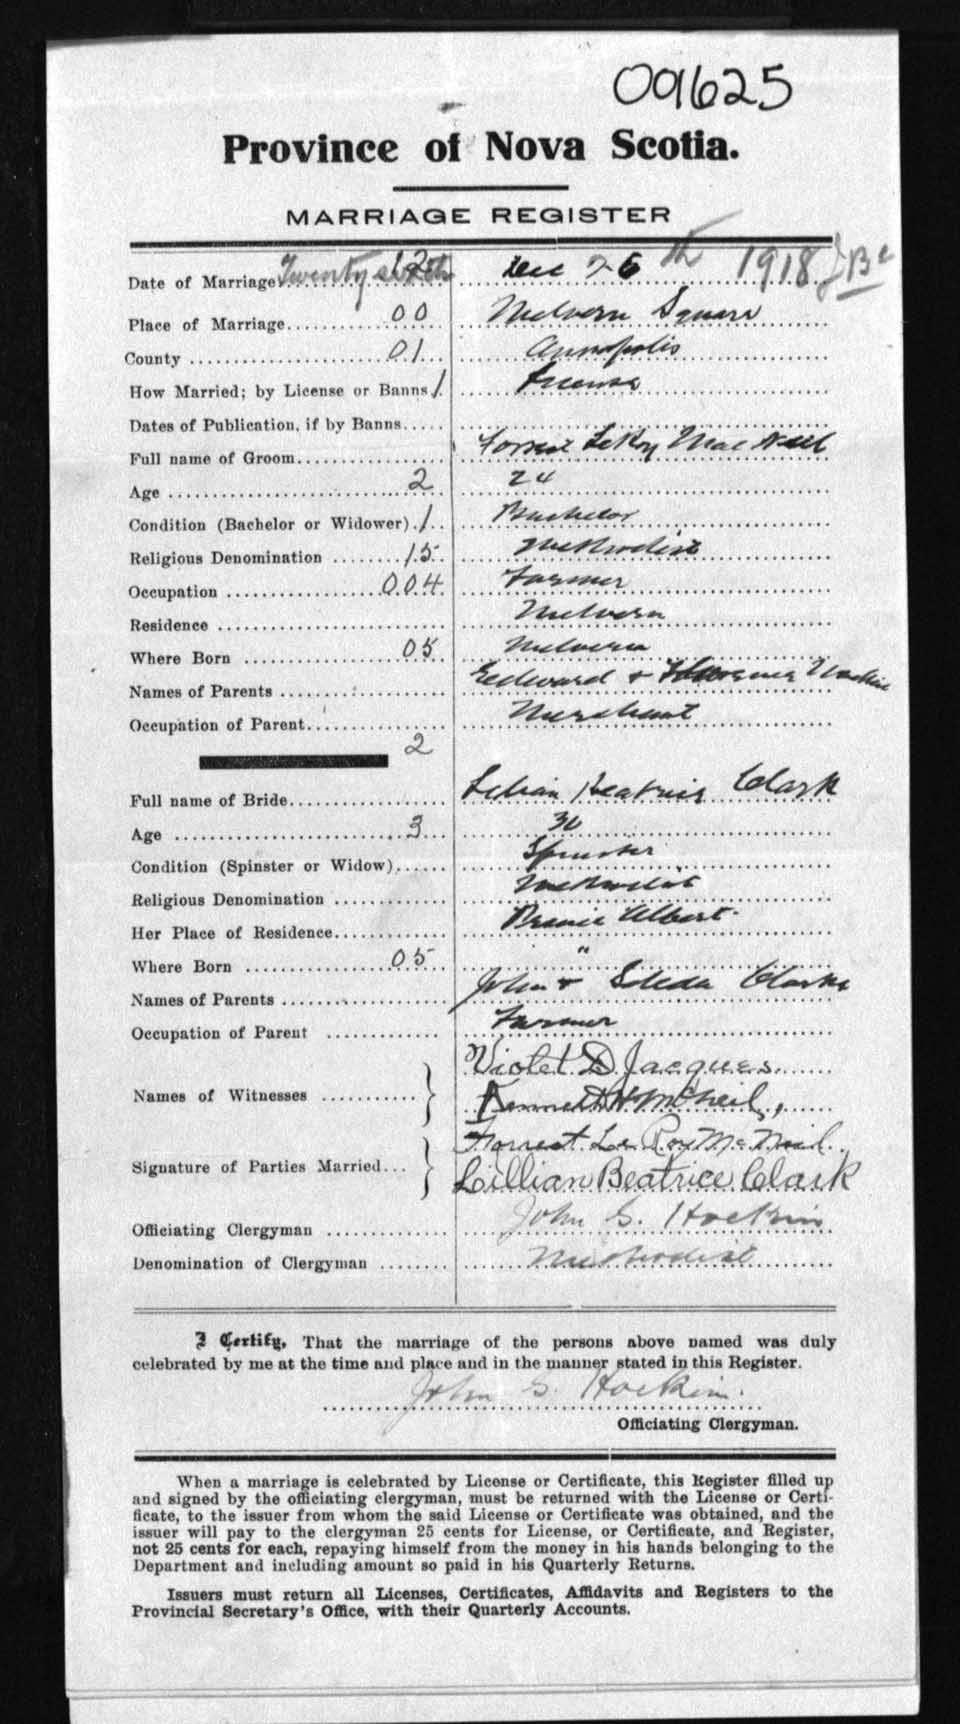 091625
Province of Nova Scotia.
MARRIAGE REGISTER
Date of Marriage Twenty sixth Dec 26th 1918
Place of Marriage 00 Melvern Square
County 01 Annapolis
How Married; by License or Banns 1 License
Dates of Publication, if by Banns
Full name of Groom Forrest LeRoy MacNeil
Age 2 24
Condition (Bachelor or Widower) 1 Bachelor
Religious Denomination 15 Methodist
Occupation 004 Farmer
Residence Melvern
Where Born 05 Melvern
Names of Parents Edward +
Occupation of Parent Merchant
2
Full name of Bride Lilian Beatrice Clark
Age 3 30
Condition (Spinster or Widow) Spinster
Religious Denomination Methodist
Her Place of Residence Prince Albert
Where Born 05 "
Names of Parents John + Clarke
Occupation of Parent Farmer
Names of Witnesses } Violet D Jacques
Kenneth H McNeil,
Signature of Parties Married } Forrest Le Roy McNeil
Lillian Beatrice Clark
Officiating Clergyman John G. Hockin
Denomination of Clergyman Methodist
I Certify, That the marriage of the persons above named was duly
celebrated by me at the time and place and in the manner stated in this Register.
John G. Hockin.
Officiating Clergyman.
When a marriage is celebrated by License or Certificate, this Register filled up
and signed by the officiating clergyman, must be returned with the License or Certi-
ficate, to the issuer from whom the said License or Certificate was obtained, and the
issuer will pay to the clergyman 25 cents for License, or Certificate, and Register,
not 25 cents for each, repaying himself from the money in his hands belonging to the
Department and including amount so paid in his Quarterly Returns.
Issuers must return all Licenses, Certificates, Affidavits and Registers to the
Provincial Secretary's Office, with their Quarterly Accounts.